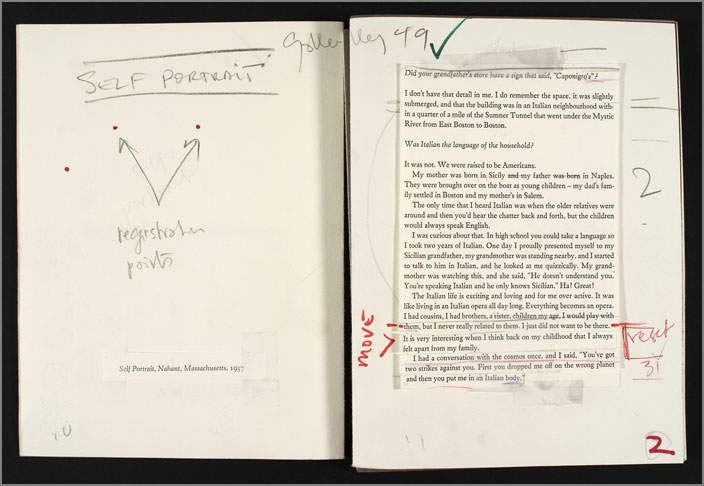 SELF PORTRAIT
registration
points
Self Portrait, Nahant, Massachusetts, 1957
10
49
Did your grandfather's store have a sign that said, "Caponigro's"?
I don't have that detail in me. I do remember the space, it was slightly
submerged, and that the building was in an Italian neighbourhood with-
in a quarter of a mile of the Sumner Tunnel that went under the Mystic
River from East Boston to Boston.
Was Italian the language of the household?
It was not. We were raised to be Americans.
My mother was born in Sicily and my father was born in Naples.
They were brought over on the boat as young children – my dad's fam-
ily settled in Boston and my mother's in Salem.
The only time that I heard Italian was when the older relatives were
around and then you'd hear the chatter back and forth, but the children
would always speak English.
I was curious about that. In high school you could take a language so
I took two years of Italian. One day I proudly presented myself to my
Sicilian grandfather, my grandmother was standing nearby, and I started
to talk to him in Italian, and he looked at me quizzically. My grand-
mother was watching this, and she said, "He doesn't understand you.
You're speaking Italian and he only knows Sicilian." Ha! Great!
The Italian life is exciting and loving and for me over active. It was
like living in an Italian opera all day long. Everything becomes an opera.
I had cousins, I had brothers, a sister, children my age, I would play with
them, but I never really related to them. I just did not want to be there.
It is very interesting when I think back on my childhood that I always
felt apart from my family.
I had a conversation with the cosmos once, and I said, "You've got
two strikes against you. First you dropped me off on the wrong planet
and then you put me in an Italian body."
2
move
reset
31
11
2